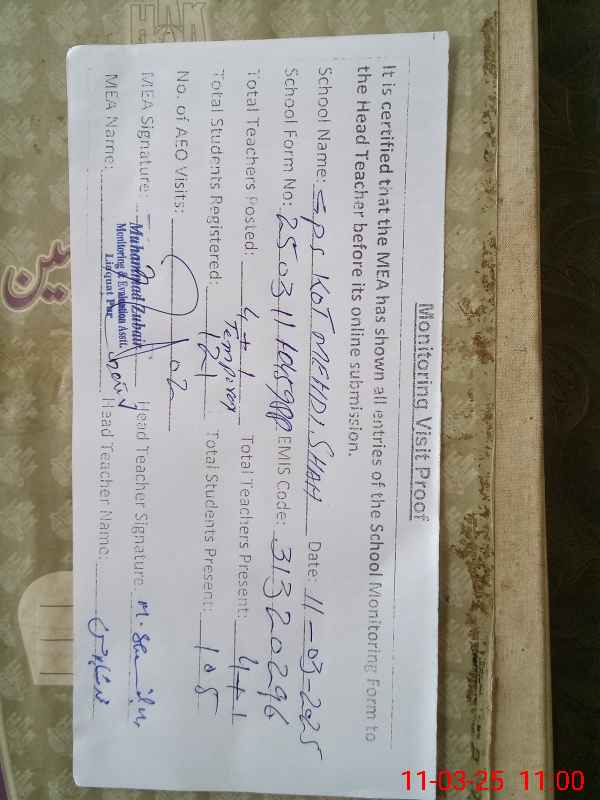 Monitoring Visit Proof
It is certified that the MEA has shown all entries of the School Monitoring Form to
the Head Teacher before its online submission.
School Name: GPS KOT MEHDI SHAH Date: 11-03-2025
School Form No: EMIS Code: 31320296
Total Teachers Posted: 4+1 Total Teachers Present: 4+1
Temporary
Total Students Registered: 121 Total Students Present: 105
No. of AEO Visits: 02
MEA Signature: Head Teacher Signature:
Muhammad Zubair
Monitoring & Evaluation Asstt.
Liaquat Pur
MEA Name: Head Teacher Name:
11-03-25 11:00